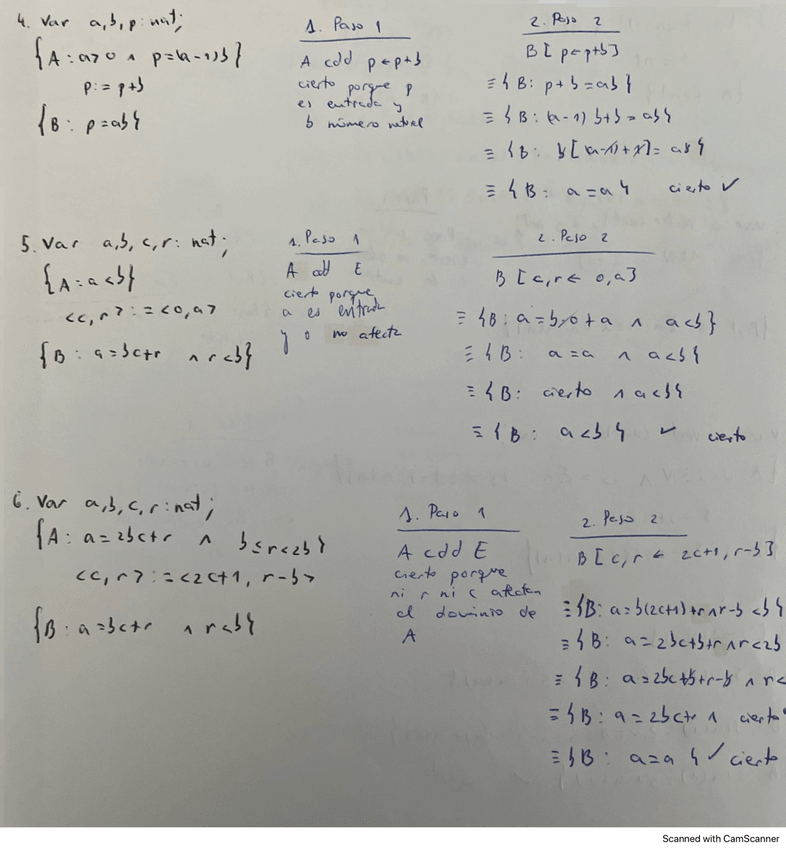 4. Var a,b,p: nat;
{A: a>0 ∧ p=(a-1)b}
p:= p+b
{B: p=ab}
1. Paso 1
A cdd p←p+b
cierto porque p
es entrada y
b número natural
2. Paso 2
B[p←p+b]
≡{B: p+b=ab}
≡{B: (a-1)b+b=ab}
≡{B: b[(a-1)+1]=ab}
≡{B: a=a} cierto ✓
5. Var a,b,c,r: nat;
{A: a<b}
<c,r>:=<0,a>
{B: a=bc+r ∧ r<b}
1. Paso 1
A cdd E
cierto porque
a es entrada
y 0 no afecta
2. Paso 2
B[c,r←0,a]
≡{B: a=b·0+a ∧ a<b}
≡{B: a=a ∧ a<b}
≡{B: cierto ∧ a<b}
≡{B: a<b} ✓ cierto
6. Var a,b,c,r:nat;
{A: a=2bc+r ∧ b≤r<2b}
<c,r>:=<2c+1, r-b>
{B: a=bc+r ∧ r<b}
1. Paso 1
A cdd E
cierto porque
ni r ni c afecten
el dominio de
A
2. Paso 2
B[c,r←2c+1,r-b]
≡{B: a=b(2c+1)+r∧r-b<b}
≡{B: a=2bc+b+r∧r<2b
≡{B: a=2bc+b+r-b ∧ r<
≡{B: a=2bc+r ∧ cierto
≡{B: a=a} ✓ cierto
Scanned with CamScanner